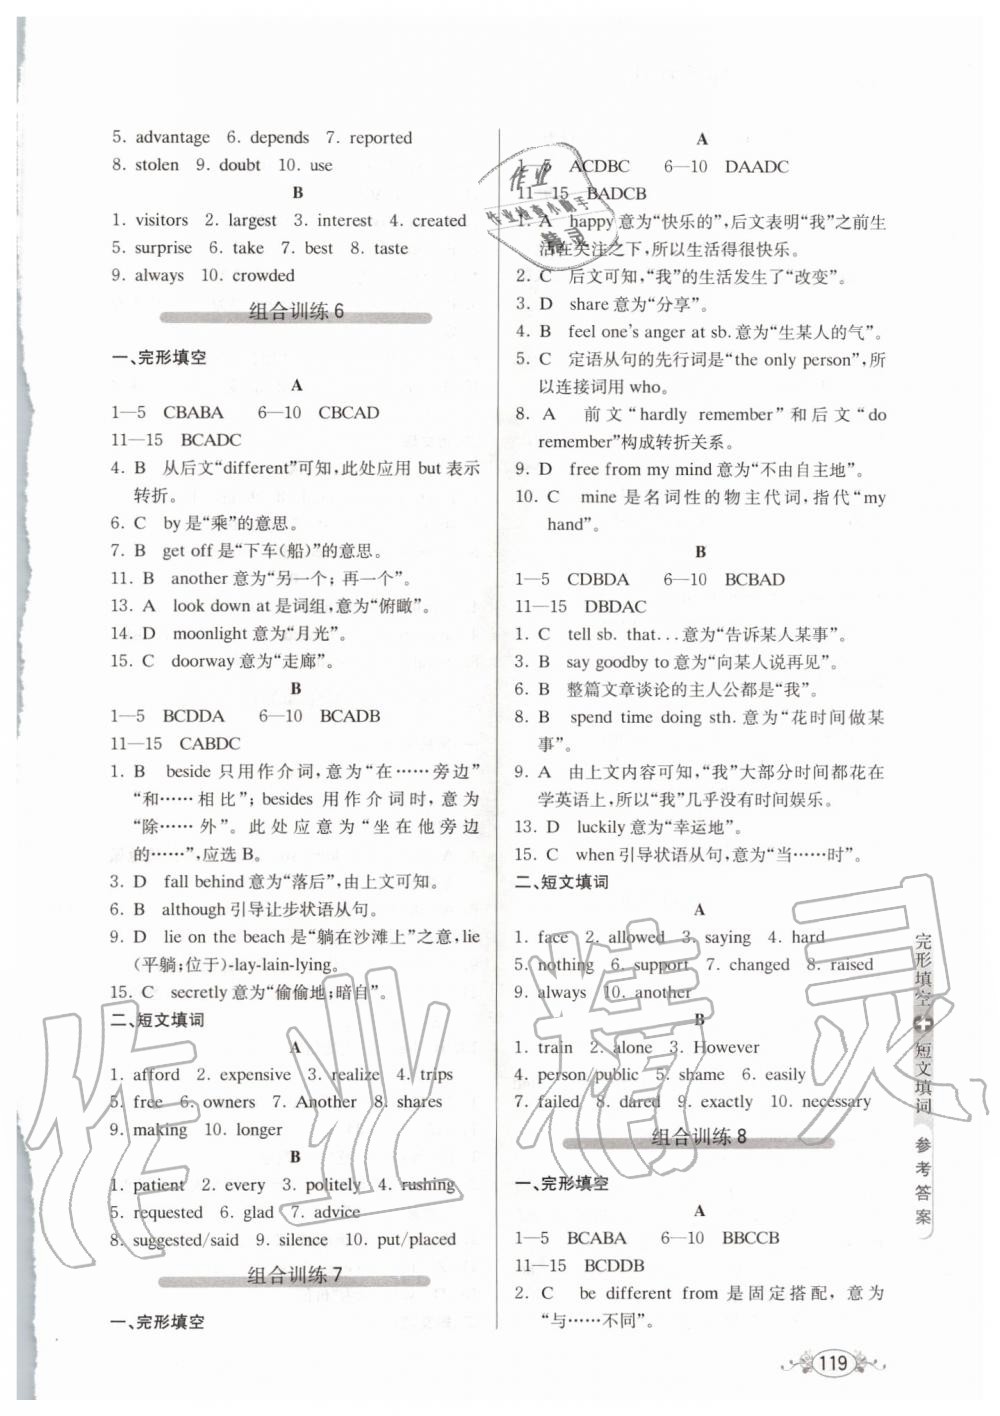 5. advantage 6. depends 7. reported
8. stolen 9. doubt 10. use
B
1. visitors 2. largest 3. interest 4. created
5. surprise 6. take 7. best 8. taste
9. always 10. crowded
组合训练6
一、完形填空
A
1—5 CBABA 6—10 CBCAD
11—15 BCADC
4. B 从后文“different”可知,此处应用 but 表示
转折。
6. C by是“乘”的意思。
7. B get off 是“下车(船)”的意思。
11. B another 意为“另一个；再一个”。
13. A look down at 是词组,意为“俯瞰”。
14. D moonlight 意为“月光”。
15. C doorway 意为“走廊”。
B
1—5 BCDDA 6—10 BCADB
11—15 CABDC
1. B beside 只用作介词,意为“在……旁边”
“和……相比”；besides 用作介词时,意为
“除……外”。此处应意为“坐在他旁边
的……”,应选 B。
3. D fall behind 意为“落后”,由上文可知。
6. B although 引导让步状语从句。
9. D lie on the beach 是“躺在沙滩上”之意,lie
(平躺;位于)-lay-lain-lying。
15. C secretly 意为“偷偷地;暗自”。
二、短文填词
A
1. afford 2. expensive 3. realize 4. trips
5. free 6. owners 7. Another 8. shares
9. making 10. longer
B
1. patient 2. every 3. politely 4. rushing
5. requested 6. glad 7. advice
8. suggested/said 9. silence 10. put/placed
组合训练7
一、完形填空
A
1—5 ACDBC 6—10 DAADC
11—15 BADCB
1. A happy 意为“快乐的”,后文表明“我”之前生
活在关注之下,所以生活得很快乐。
2. C 后文可知,“我”的生活发生了“改变”。
3. D share 意为“分享”。
4. B feel one's anger at sb. 意为“生某人的气”。
5. C 定语从句的先行词是“the only person”,所
以连接词用 who。
8. A 前文“hardly remember”和后文“do
remember”构成转折关系。
9. D free from my mind 意为“不由自主地”。
10. C mine 是名词性的物主代词,指代“my
hand”。
B
1—5 CDBDA 6—10 BCBAD
11—15 DBDAC
1. C tell sb. that...意为“告诉某人某事”。
3. B say goodby to 意为“向某人说再见”。
6. B 整篇文章谈论的主人公都是“我”。
8. B spend time doing sth. 意为“花时间做某
事”。
9. A 由上文内容可知,“我”大部分时间都花在
学英语上,所以“我”几乎没有时间娱乐。
13. D luckily 意为“幸运地”。
15. C when 引导状语从句,意为“当……时”。
二、短文填词
A
1. face 2. allowed 3. saying 4. hard
5. nothing 6. support 7. changed 8. raised
9. always 10. another
B
1. train 2. alone 3. However
4. person/public 5. shame 6. easily
7. failed 8. dared 9. exactly 10. necessary
组合训练8
一、完形填空
A
1—5 BCABA 6—10 BBCCB
11—15 BCDDB
2. C be different from 是固定搭配,意为
“与……不同”。
完形填空+短文填词 参考答案
119
作业
作业检查小助手
精灵
作业精灵